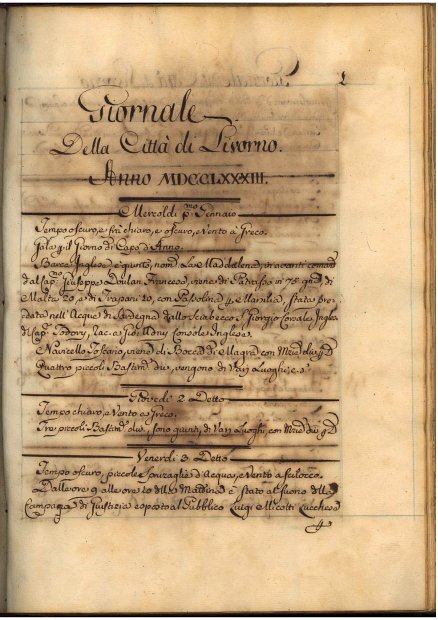 Giornale
Della Città di Livorno.
Anno MDCCLXXXIII.
Mercoldì p.mo Gennaio
Tempo oscuro, e frà chiaro, e oscuro, e Vento à Greco.
Gala p. il Giorno di Capo d'Anno.
Barca Inglese è giunta, nom.ta La Maddalena, in avanti comand
dal Cap. Giuseppe Francese, viene di in 78 gni, di
Malta 20, e di Trapani 20, con p. Marsilia, stata pre
data nell'Acque di Sardegna dallo Sciabecco S. Giorgio Corsale Inglese
di Cap. Rac. a Gio: Udny Console Inglese.
Navicello Toscano, viene di Bocca di Magra con Mzie div. p. D
Quattro piccoli Bastim. div. vengono di Varj Luoghi, e s
Giovedì 2 Detto
Tempo chiaro, e Vento a Greco.
Tre piccoli Bastim. div. sono giunti, di Varj Luoghi, con Mzie div. p. D
Venerdì 3 Detto
Tempo oscuro, piccole Spruzaglie d'Acqua, e Vento a Scilocco.
Dalle ore 9 alle ore 10 della Mattina è stato al suono della
Campana di Giustizia esposto al Pubblico Luigi Lucchese